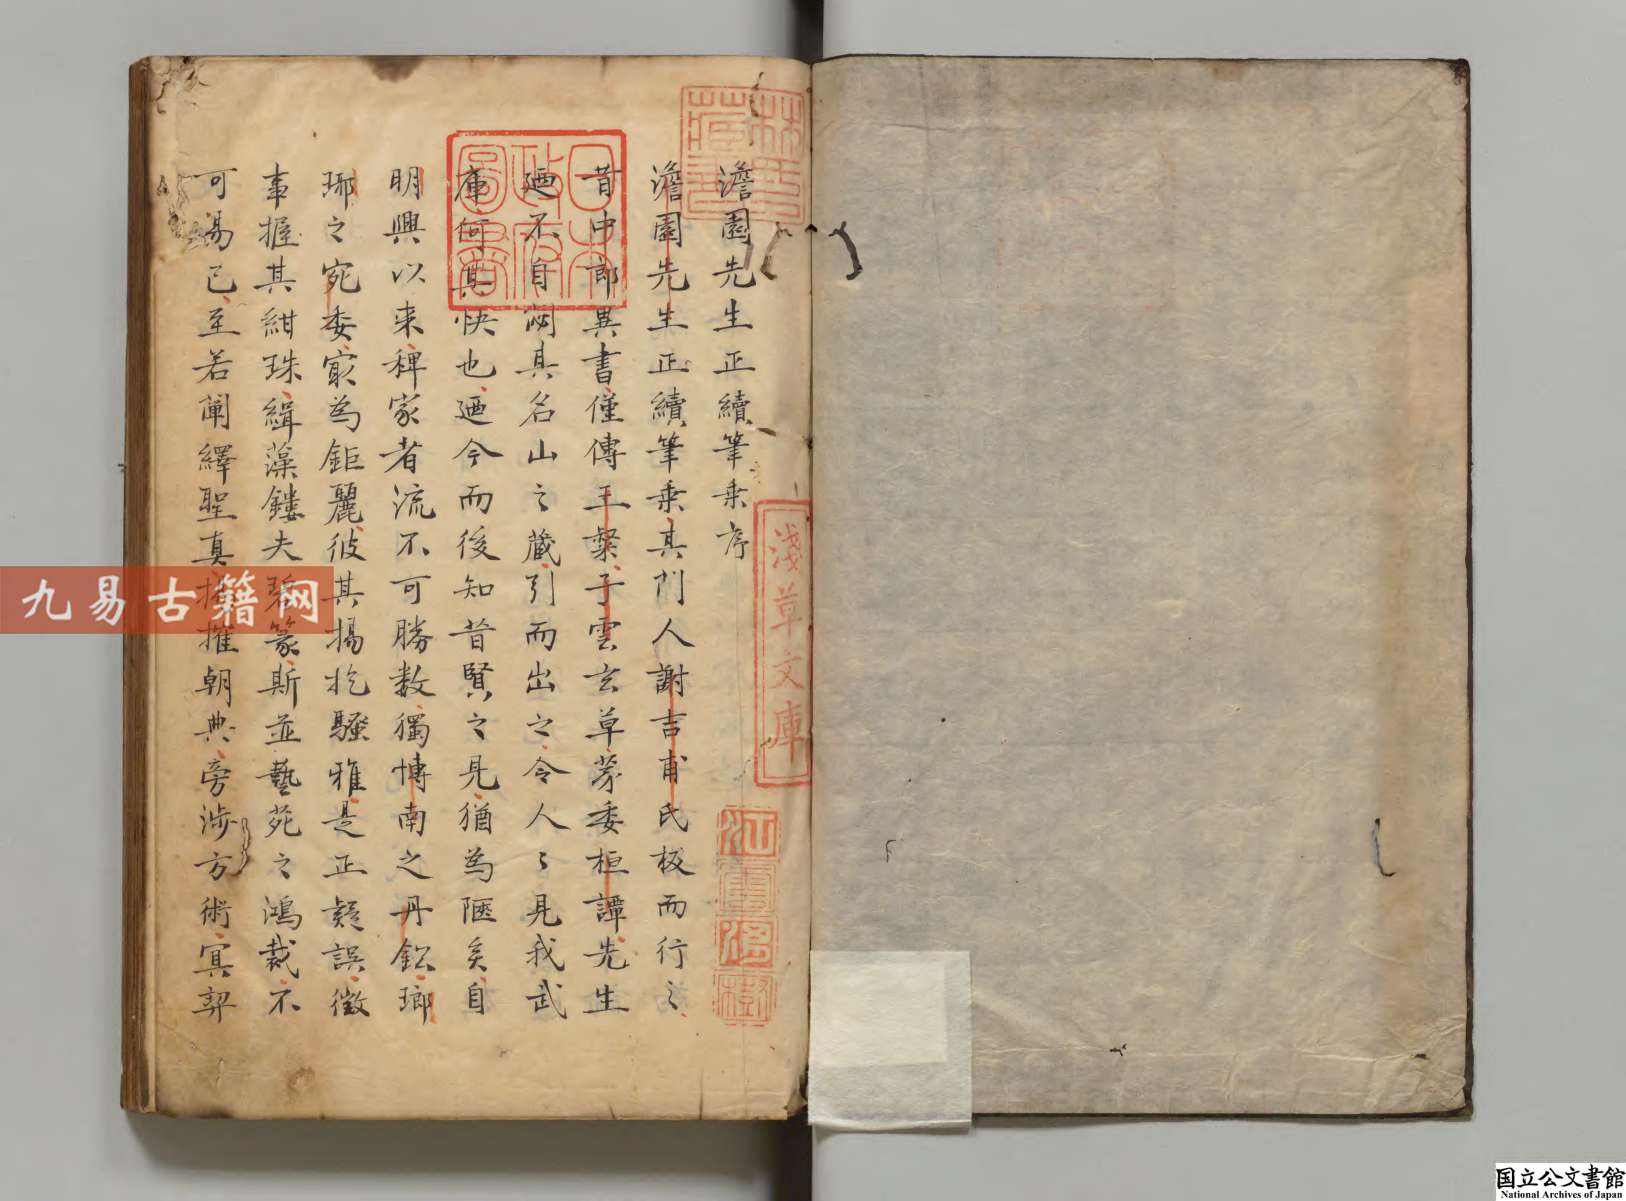 澹園先生正續筆乘序
澹園先生正續筆乘其門人謝吉甫氏板而行之
昔中郎異書僅傳王粲子雲玄草茅委桓譚先生
廼不自閟其名山之藏引而出之令人〻見我武
庫何其快也廼今而後知昔賢之見猶為匧矣自
明興以来稗家者流不可勝数獨博南之丹鈆瑯
琊之宛委㝡為鉅麗彼其揚扢騷雅是正疑誤徵
事握其紺珠緝藻鏤夫碧篆斯並藝苑之鴻裁不
可易已至若闡繹聖真揚搉朝典旁涉方術冥契
林氏藏書
日本政府圖書
淺草文庫
江雲渭樹
九易古籍网
国立公文書館
National Archives of Japan